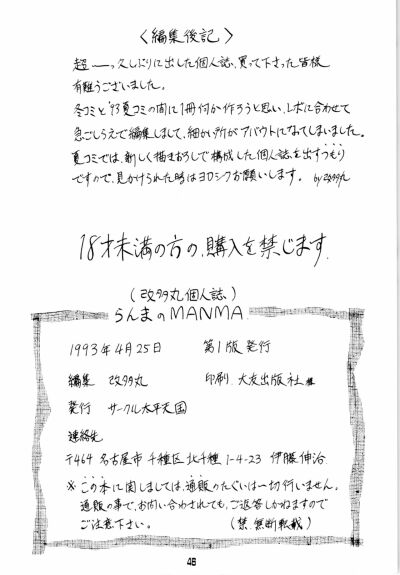 〈編集後記〉
超――っ久しぶりに出した個人誌、買って下さった皆様
有難うございました。
冬コミと'93夏コミの間に1冊何か作ろうと思い、レボに合わせて
急ごしらえで編集しまして、細かい所がアバウトになってしまいました。
夏コミでは、新しく描きおろしで構成した個人誌を出すつもり
ですので、見かけられた時はヨロシクお願いします。 by改多丸
18才未満の方の、購入を禁じます.
(改多丸個人誌)
らんまのMANMA
1993年4月25日 第1版発行
編集 改多丸 印刷 大友出版社 様
発行 サークル太平天国
連絡先
〒464 名古屋市 千種区 北千種 1-4-23 伊藤伸治
※この本に関しましては、通販のたぐいは一切行いません。
通販の事で、お問い合わされても、ご返答しかねますので
ご注意下さい。 (禁.無断転載)
46